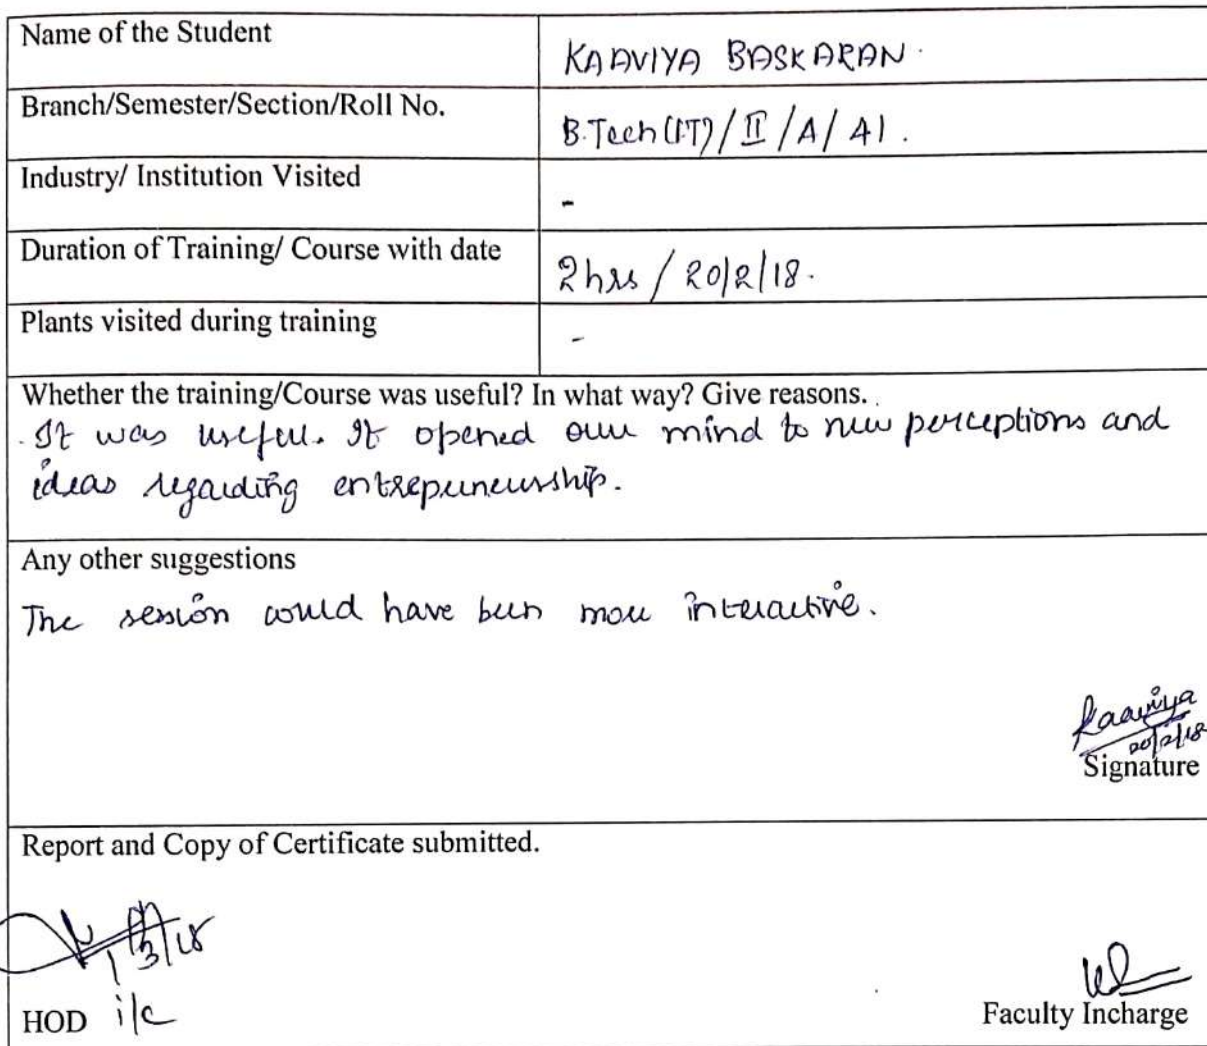 Name of the Student
KAAVIYA BASKARAN.
Branch/Semester/Section/Roll No.
B.Tech (IT) / II / A / 41.
Industry/ Institution Visited
-
Duration of Training/ Course with date
2 hrs / 20/2/18.
Plants visited during training
-
Whether the training/Course was useful? In what way? Give reasons.
It was useful. It opened our mind to new perceptions and
ideas regarding entrepreneurship.
Any other suggestions
The session could have been more interactive.
Kaaviya
20/2/18
Signature
Report and Copy of Certificate submitted.
HOD i/c
Faculty Incharge